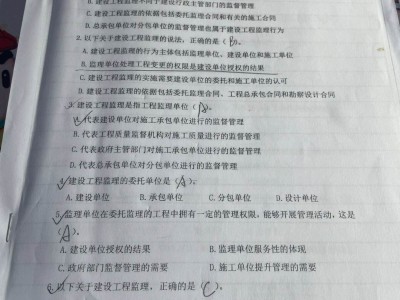 B. 建设工程监理不同于建设行政主管部门的监督管理
C. 建设工程监理的依据包括委托监理合同和有关的施工合同
D. 总承包单位对分包单位的监督管理也属于建设工程监理行为
2. 以下关于建设工程监理的说法，正确的是（B）。
A. 建设工程监理的行为主体包括监理单位、建设单位和施工单位
B. 监理单位处理工程变更的权限是建设单位授权的结果
C. 建设工程监理的实施需要建设单位的委托和施工单位的认可
D. 建设工程监理的依据包括委托监理合同、工程总承包合同和勘察设计合同
3. 建设工程监理是指工程监理单位（A）。
A. 代表建设单位对施工承包单位进行的监督管理
B. 代表工程质量监督机构对施工质量进行的监督管理
C. 代表政府主管部门对施工承包单位进行的监督管理
D. 代表总承包单位对分包单位进行的监督管理
4. 建设工程监理的委托单位是（A）。
A. 建设单位 B. 承包单位 C. 分包单位 D. 设计单位
5. 监理单位在委托监理的工程中拥有一定的管理权限，能够开展管理活动，这是
（A）。
A. 建设单位授权的结果 B. 监理单位服务性的体现
C. 政府部门监督管理的需要 D. 施工单位提升管理的需要
6. 以下关于建设工程监理，正确的是（C）。